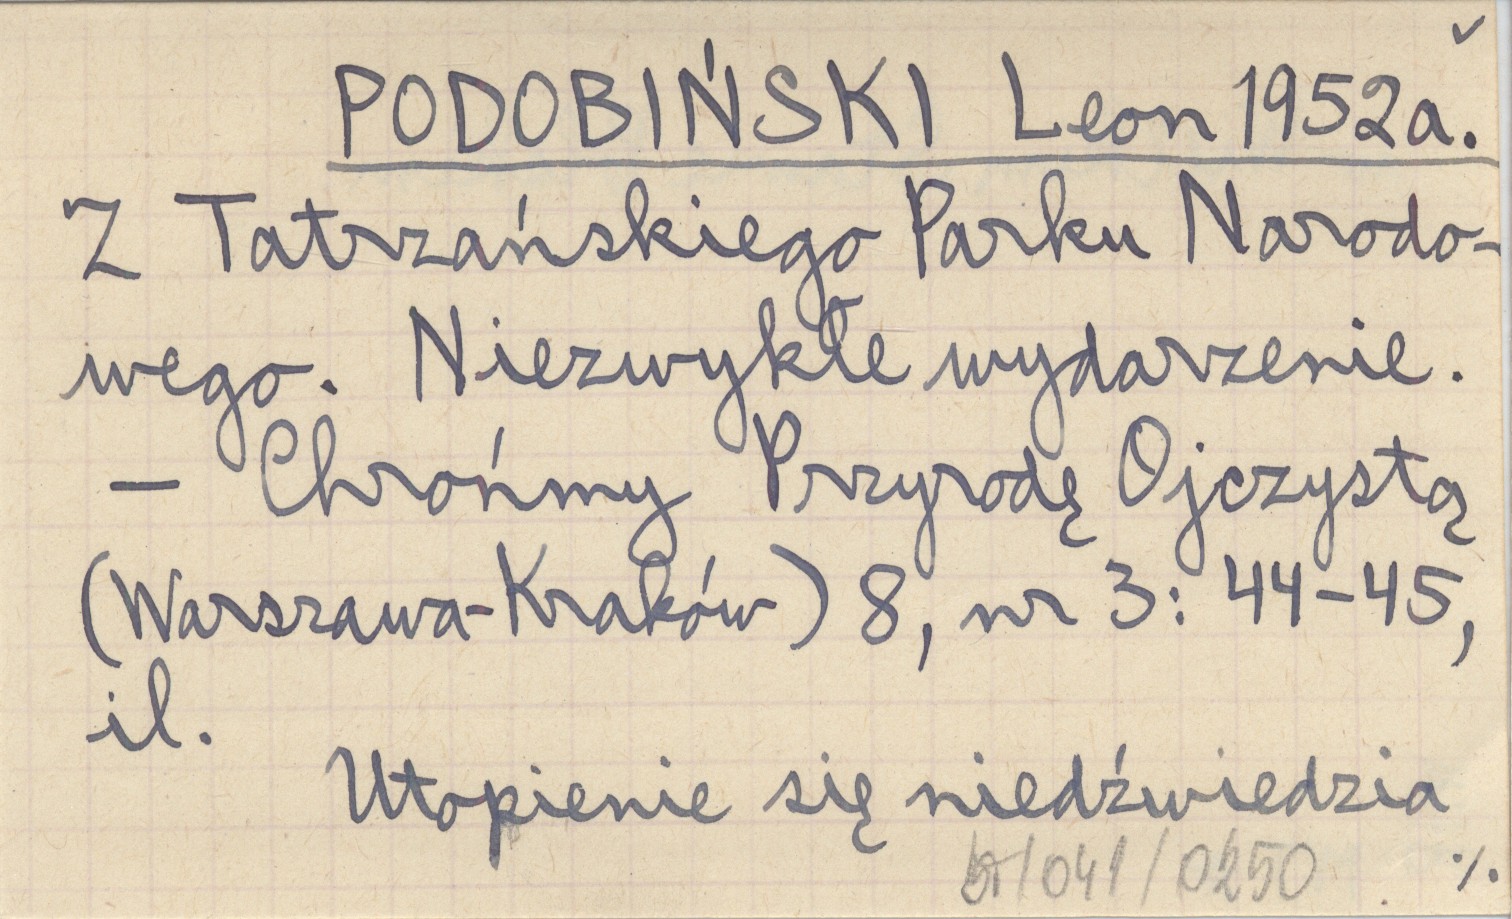 PODOBIŃSKI Leon 1952a.
Z Tatrzańskiego Parku Narodo-
wego. Niezwykłe wydarzenie.
— Chrońmy Przyrodę Ojczystą
(Warszawa-Kraków) 8, nr 3: 44-45,
il.
Utopienie się niedźwiedzia
/041/0250 ./.